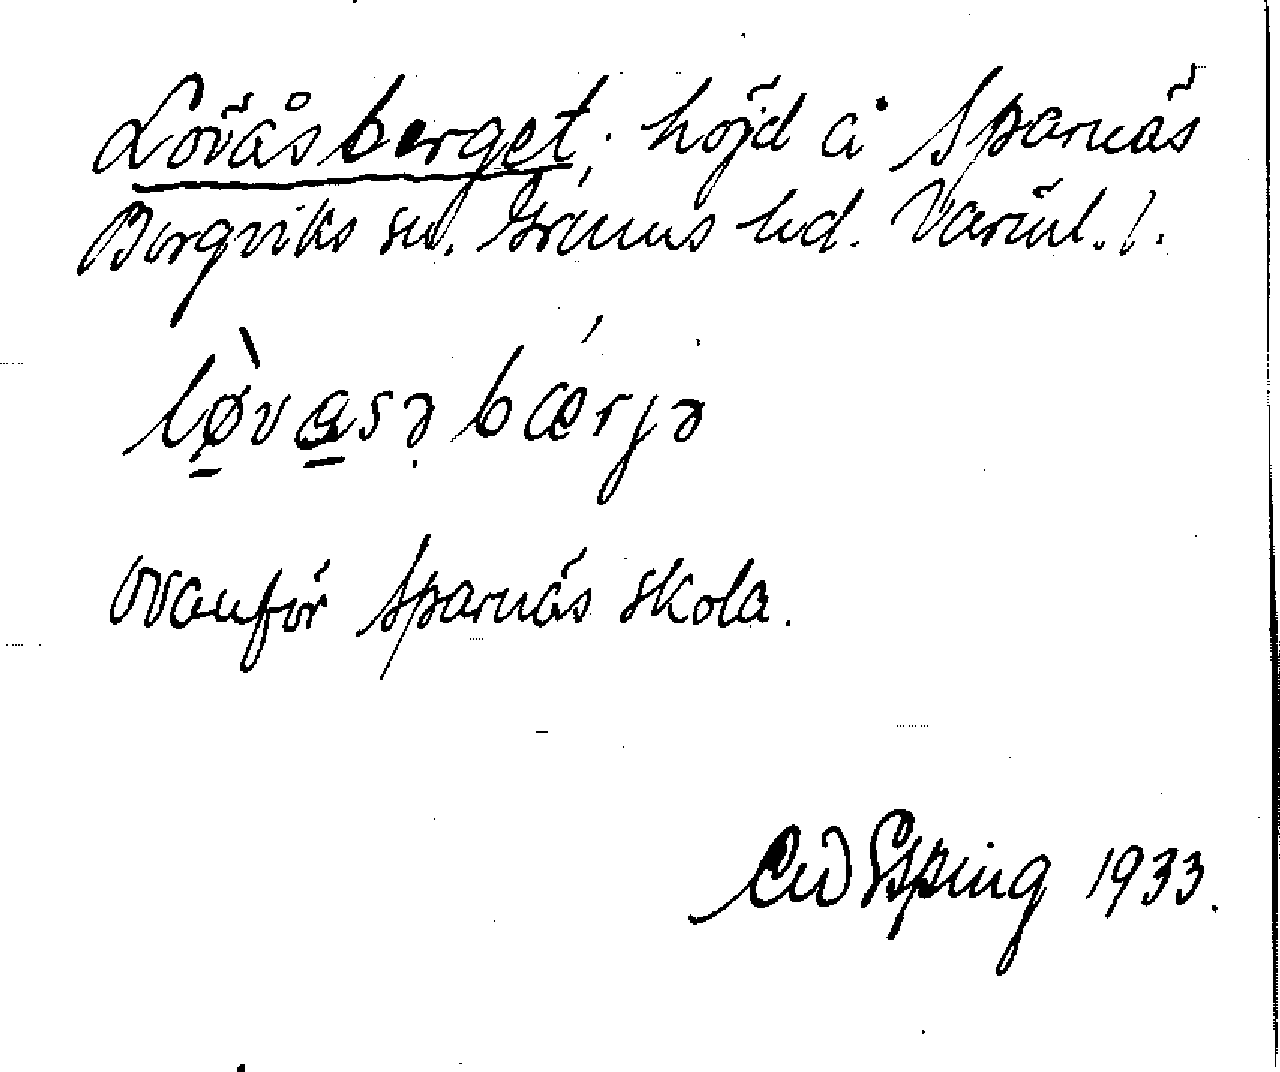 Lövåsberget; höjd å Sparnäs
Borgviks sn. Gräums hd. Värml. l.
lø̱̀va̱sə bǽrjə
Ovanför Sparnäs skola.
Esping 1933.